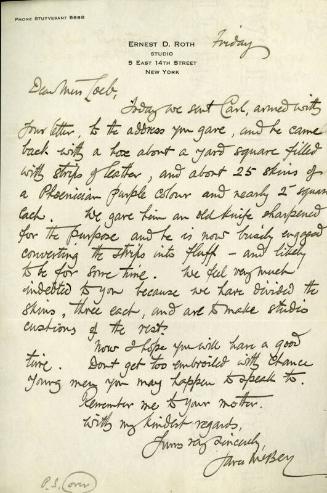 PHONE STUYVESANT 5888
ERNEST D. ROTH
STUDIO
5 EAST 14TH STREET
NEW YORK
Friday
Dear Miss Loeb,
Today we sent Carl, armed with
your letter, to the address you gave, and he came
back with a box about a yard square filled
with strips of leather, and about 25 skins of
a Phoenician purple colour and nearly 2" square
each. We gave him an old knife sharpened
for the purpose and he is now busily engaged
converting the strips into fluff – and likely
to be for some time. We feel very much
indebted to you because we have divided the
skins, three each, and are to make studio
cushions of the rest.
Now I hope you will have a good
time. Don't get too embroiled with chance
young men you may happen to speak to.
Remember me to your mother.
With my kindest regards,
Yours very sincerely,
James McBey
P.S. over